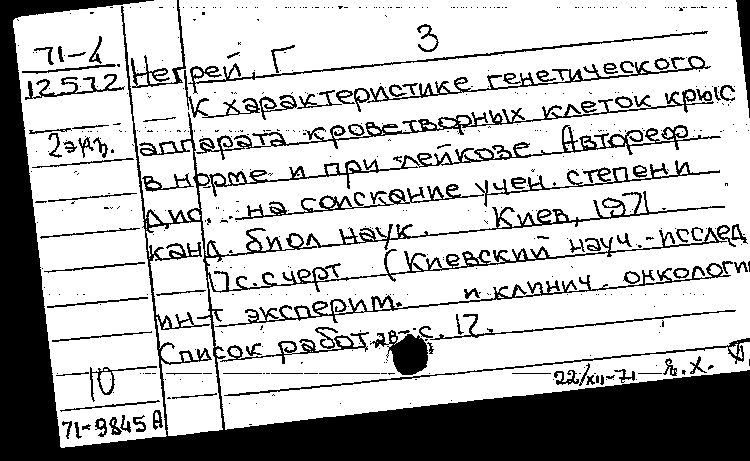 3
71-4
12572
Негрей, Г
К характеристике генетического
2 экз.
аппарата кроветворных клеток крыс
в норме и при лейкозе. Автореф.
дис. на соискание учен. степени
канд. биол наук. Киев, 1971.
17 с. с черт (Киевский науч.-исслед
ин-т эксперим. и клинич. онкологии
Список работ авт. с. 17.
10
22/XII-71
71-9845А